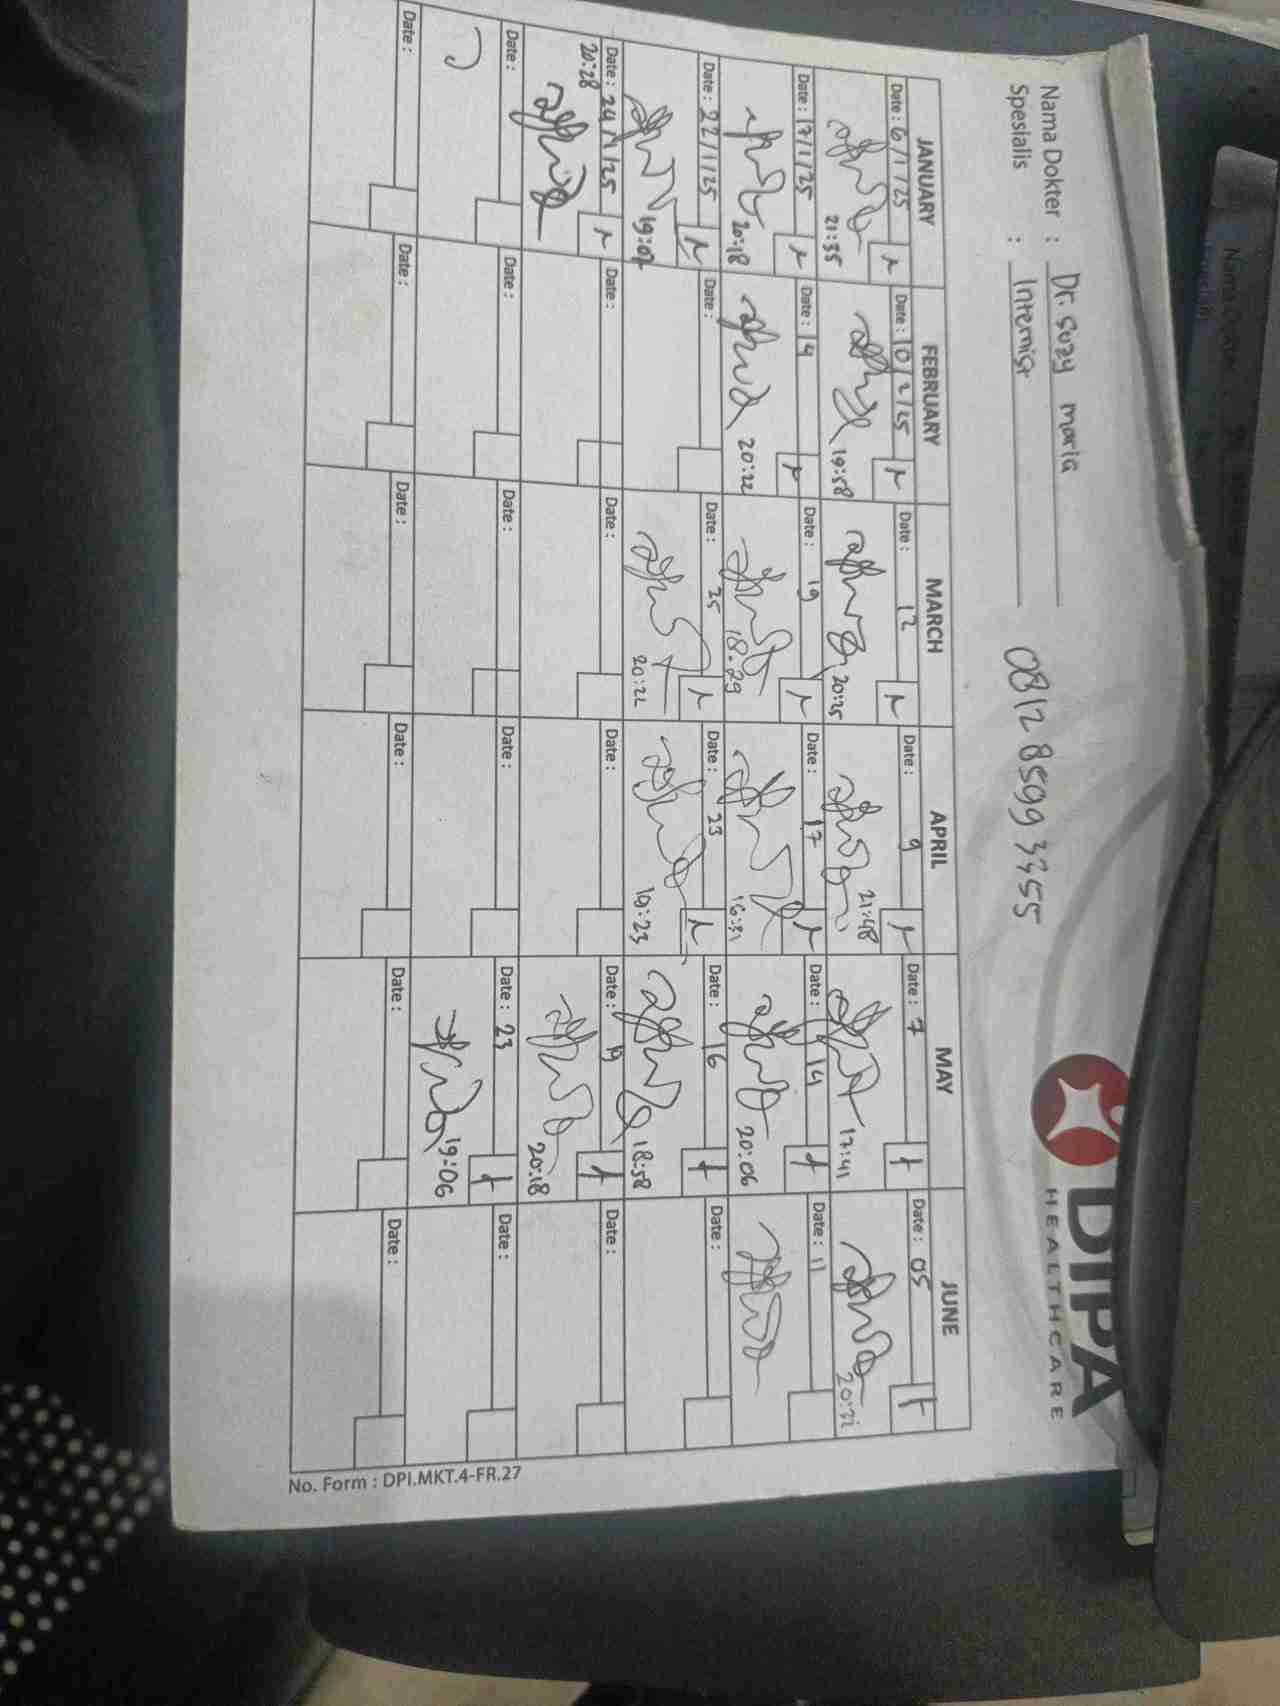 Nama Dokter : Dr. Suzy maria
Spesialis : Internist
0812 8599 3455
DIPA
HEALTHCARE
JANUARY FEBRUARY MARCH APRIL MAY JUNE
Date : 6/1/25 Date : 10/2/25 Date : 12 Date : 9 Date : 7 Date : 05
21:35 19:58 20:25 21:48 17:41
Date : 17/1/25 Date : 14 Date : 19 Date : 17 Date : 14 Date : 11
20:18 20:22 18.29 16:31 20:06
Date : 22/1/25 Date : Date : 25 Date : 23 Date : 16 Date :
19:07 20:22 19:23 18:58
Date : 24/1/25 Date : Date : Date : Date : 19 Date :
20:28 20:18
Date : Date : Date : Date : Date : 23 Date :
19:06
Date : Date : Date : Date : Date : Date :
No. Form : DPI.MKT.4-FR.27